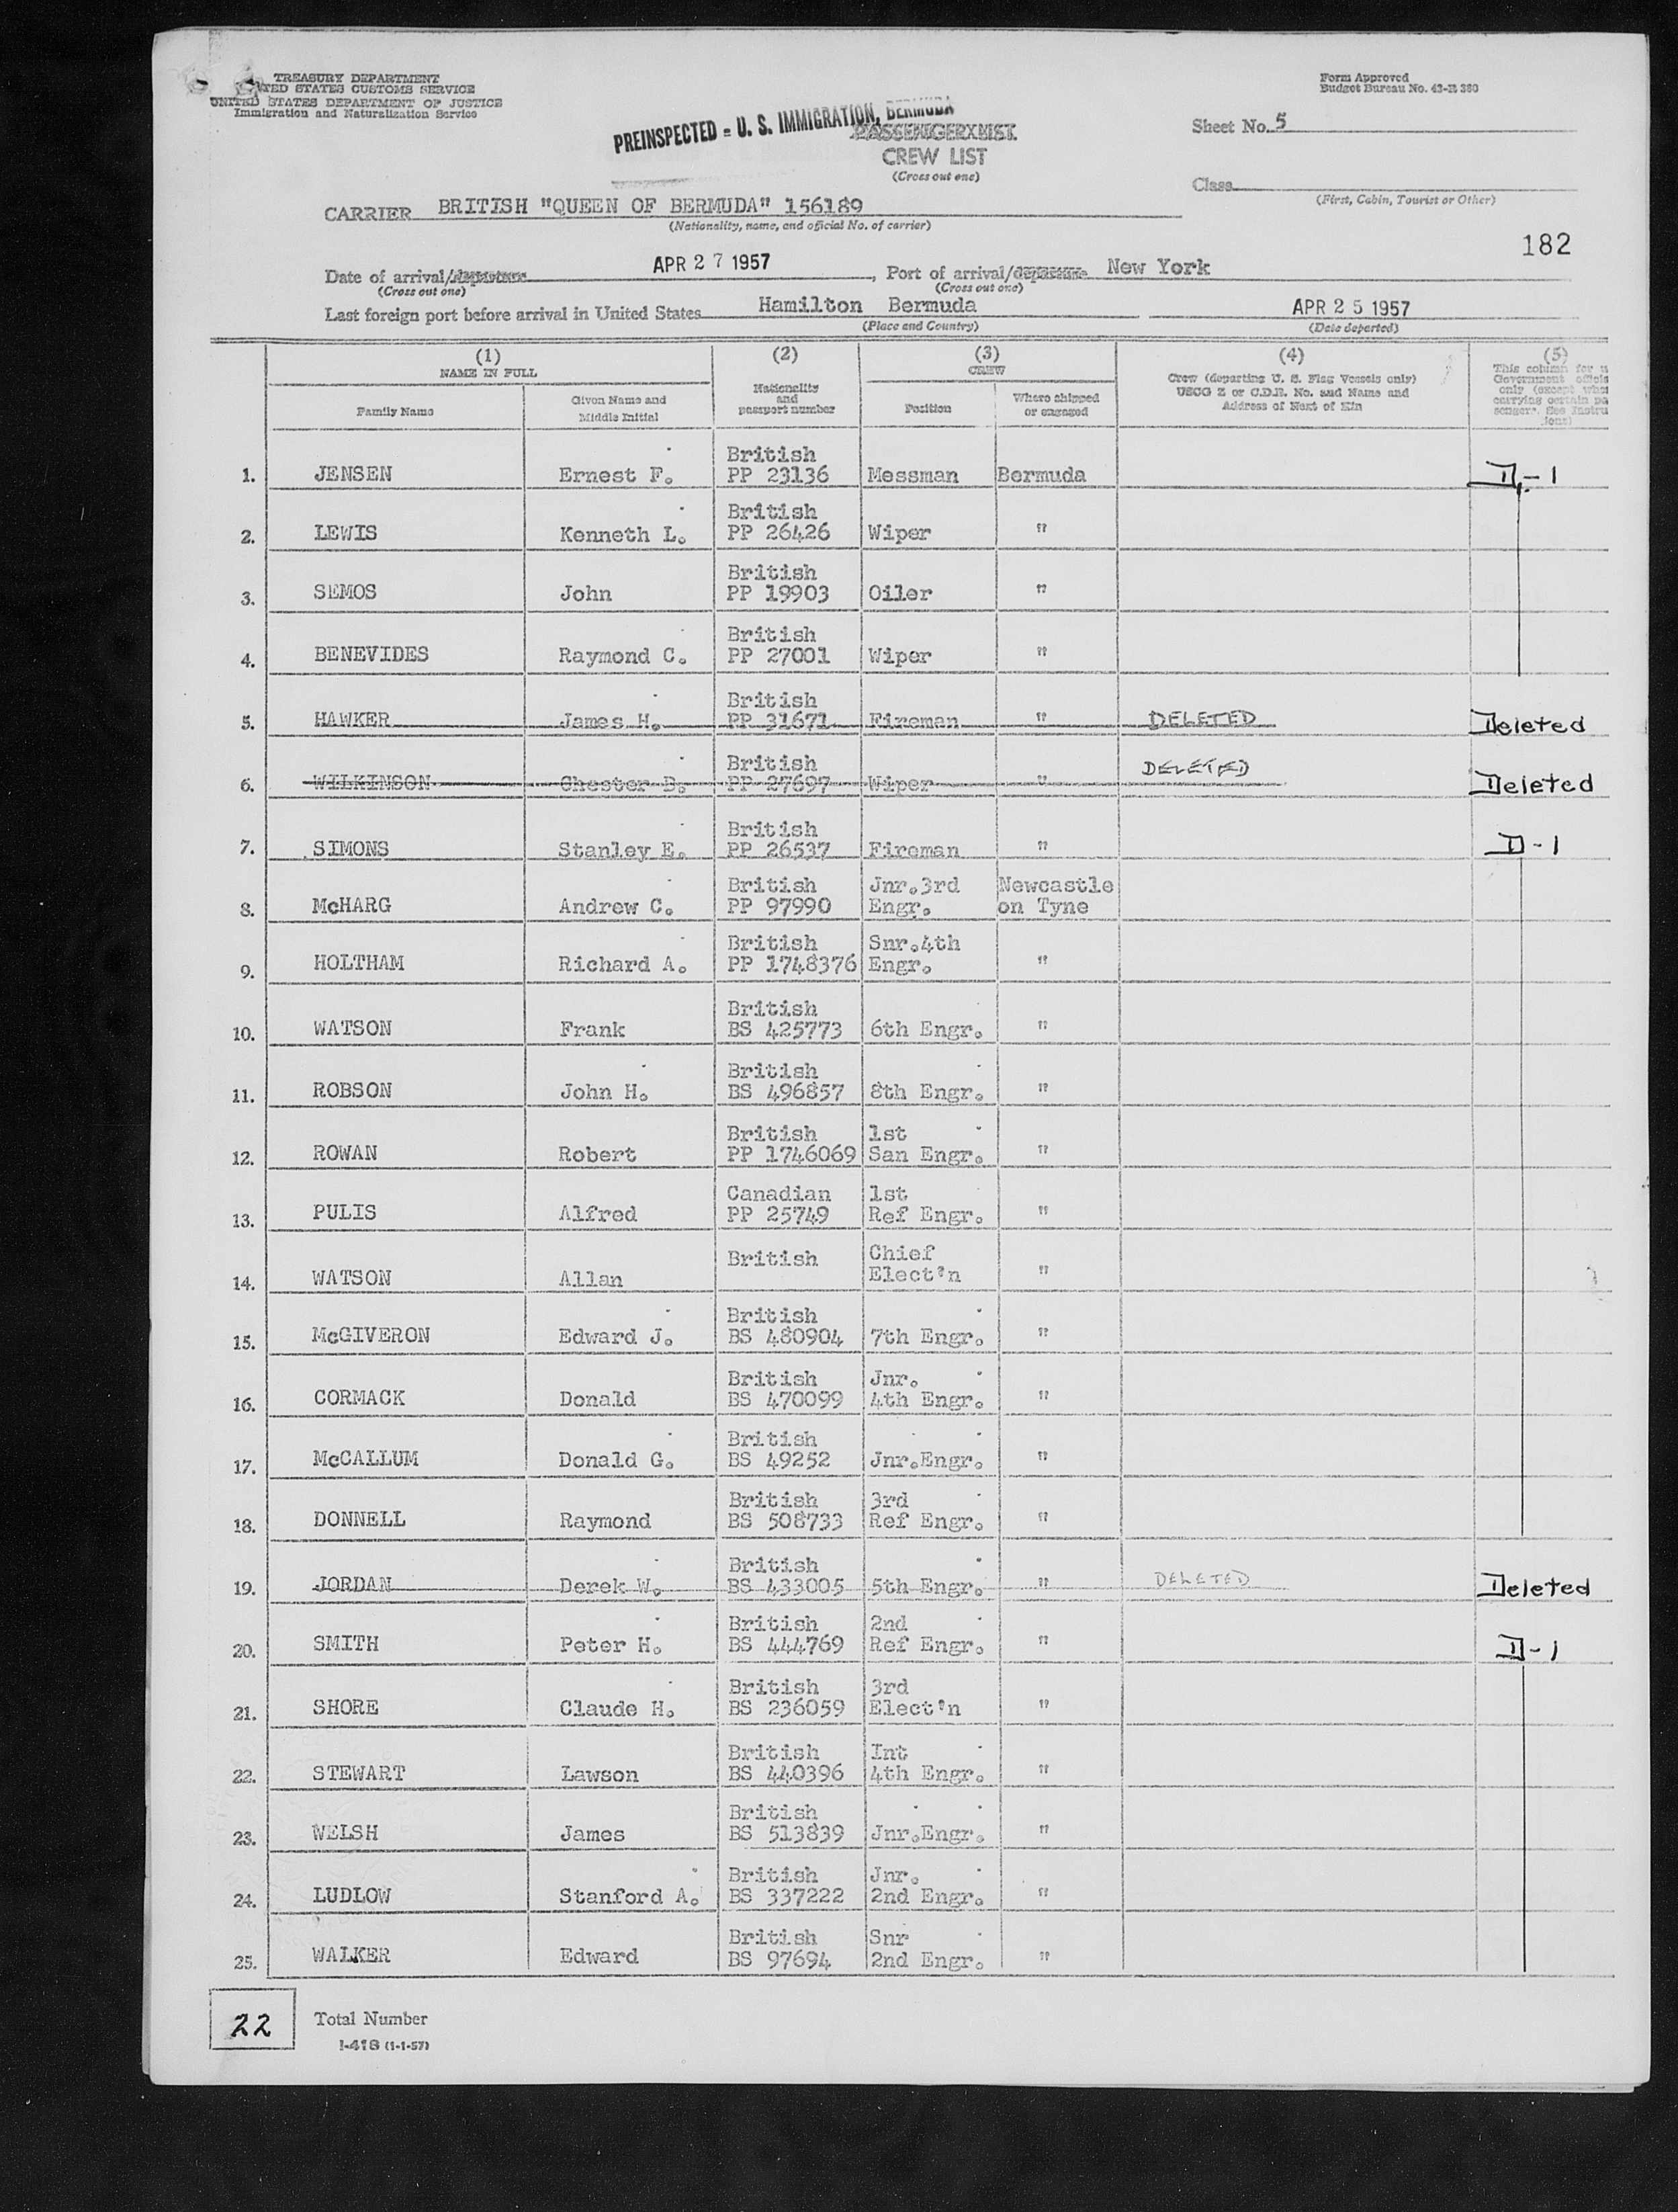 TREASURY DEPARTMENT
UNITED STATES CUSTOMS SERVICE
UNITED STATES DEPARTMENT OF JUSTICE
Immigration and Naturalization Service
Form Approved
Budget Bureau No. 43-R 380
PREINSPECTED - U. S. IMMIGRATION, BERMUDA
CREW LIST
(Cross out one)
Sheet No. 5
Class
(First, Cabin, Tourist or Other)
CARRIER BRITISH "QUEEN OF BERMUDA" 156189
(Nationality, name, and official No. of carrier)
182
Date of arrival/departure APR 27 1957, Port of arrival/departure New York
(Cross out one) (Cross out one)
Last foreign port before arrival in United States Hamilton Bermuda APR 25 1957
(Place and Country) (Date departed)
(1) (2) (3) (4) (5)
NAME IN FULL CREW
Family Name
Given Name and
Middle Initial
Nationality
and
passport number
Position
Where shipped
or engaged
Crew (departing U. S. Flag Vessels only)
USCG Z or C.D.B. No. and Name and
Address of Next of Kin
This column for
Government
only (except
carrying certain
See
British
1. JENSEN Ernest F. PP 23136 Messman Bermuda D-1
British
2. LEWIS Kenneth L. PP 26426 Wiper "
British
3. SEMOS John PP 19903 Oiler "
British
4. BENEVIDES Raymond C. PP 27001 Wiper "
British
5. HAWKER James H. PP 31671 Fireman " DELETED Deleted
British
6. WILKINSON Chester B. PP 27697 Wiper " DELETED Deleted
British
7. SIMONS Stanley E. PP 26537 Fireman " D-1
British Jnr.3rd Newcastle
8. McHARG Andrew C. PP 97990 Engr. on Tyne
British Snr.4th
9. HOLTHAM Richard A. PP 1748376 Engr. "
British
10. WATSON Frank BS 425773 6th Engr. "
British
11. ROBSON John H. BS 496857 8th Engr. "
British 1st
12. ROWAN Robert PP 1746069 San Engr. "
Canadian 1st
13. PULIS Alfred PP 25749 Ref Engr. "
British Chief
14. WATSON Allan Elect'n "
British
15. McGIVERON Edward J. BS 480904 7th Engr. "
British Jnr.
16. CORMACK Donald BS 470099 4th Engr. "
British
17. McCALLUM Donald G. BS 49252 Jnr.Engr. "
British 3rd
18. DONNELL Raymond BS 508733 Ref Engr. "
British
19. JORDAN Derek W. BS 433005 5th Engr. " DELETED Deleted
British 2nd
20. SMITH Peter H. BS 444769 Ref Engr. " D-1
British 3rd
21. SHORE Claude H. BS 236059 Elect'n "
British Int
22. STEWART Lawson BS 440396 4th Engr. "
British
23. WELSH James BS 513839 Jnr.Engr. "
British Jnr.
24. LUDLOW Stanford A. BS 337222 2nd Engr. "
British Snr
25. WALKER Edward BS 97694 2nd Engr. "
22 Total Number
I-418 (1-1-57)